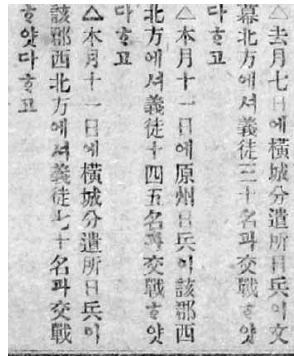 △去月七日에橫城分遣所日兵이文
幕北方에셔義徒三十名과交戰ᄒᆞ얏
다ᄒᆞ고
△本月十一日에原州日兵이該郡西
北方에셔義徒十四五名과交戰ᄒᆞ얏
다ᄒᆞ고
△本月十一日에橫城分遣所日兵이
該郡西北方에셔義徒七十名과交戰
ᄒᆞ얏다ᄒᆞ고